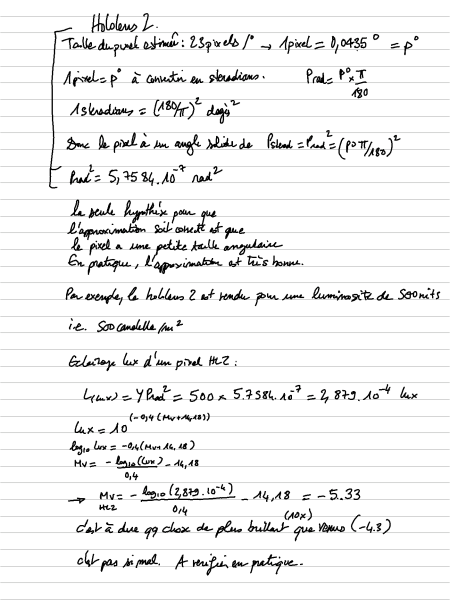 Hololens 2.
Taille du pixel estimée : 23 pixels/° → 1 pixel = 0,0435° = p°
1 pixel = p° à convertir en stéradians. Prad = p° × π / 180
1 stéradians = (180/π)² degrés²
Donc le pixel à un angle solide de Psterad = Prad² = (p° π/180)²
Prad² = 5,7584.10⁻⁷ rad²
la seule hypothèse pour que
l'approximation soit correcte est que
le pixel a une petite taille angulaire
En pratique, l'approximation est très bonne.
Par exemple, le hololens 2 est vendu pour une luminosité de 500 nits
i.e. 500 candella/m²
Eclairage lux d'un pixel HL2 :
L(lux) = Y Prad² = 500 × 5.7584.10⁻⁷ = 2,879.10⁻⁴ lux
lux = 10^(-0,4(Mv+14,18))
log₁₀ lux = -0,4(Mv+14,18)
Mv = - log₁₀(lux) / 0,4 - 14,18
→ Mv HL2 = - log₁₀(2,879.10⁻⁴) / 0,4 - 14,18 = -5.33
c'est à dire qq chose de plus brillant (10x) que Venus (-4.3)
c'est pas si mal. A verifier en pratique.